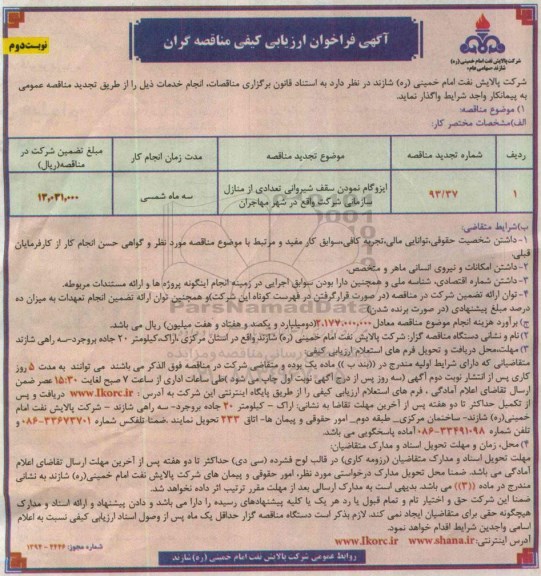 آگهی فراخوان ارزیابی کیفی مناقصه گران
نوبت دوم
شرکت پالایش نفت امام خمینی (ره)
شازند «سهامی عام»
شرکت پالایش نفت امام خمینی (ره) شازند در نظر دارد به استناد قانون برگزاری مناقصات، انجام خدمات ذیل را از طریق تجدید مناقصه عمومی
به پیمانکار واجد شرایط واگذار نماید.
۱) موضوع مناقصه:
الف)مشخصات مختصر کار:
ردیف شماره تجدید مناقصه موضوع تجدید مناقصه مدت زمان انجام کار مبلغ تضمین شرکت در مناقصه(ریال)
۱ ۹۳/۳۷ ایزوگام نمودن سقف شیروانی تعدادی از منازل سازمانی شرکت واقع در شهر مهاجران سه ماه شمسی ۱۳,۰۳۱,۰۰۰
ب)شرایط متقاضی:
۱-داشتن شخصیت حقوقی،توانایی مالی،تجربه کافی،سوابق کار مفید و مرتبط با موضوع مناقصه مورد نظر و گواهی حسن انجام کار از کارفرمایان
قبلی.
۲-داشتن امکانات و نیروی انسانی ماهر و متخصص.
۳-داشتن شماره اقتصادی، شناسه ملی و همچنین دارا بودن سوابق اجرایی در زمینه انجام اینگونه پروژه ها و ارائه مستندات مربوطه.
۴-توان ارائه تضمین شرکت در مناقصه (در صورت قرارگرفتن در فهرست کوتاه این شرکت)و همچنین توان ارائه تضمین انجام تعهدات به میزان ده
درصد مبلغ پیشنهادی (در صورت برنده شدن)
ج) برآورد هزینه انجام موضوع مناقصه معادل (دومیلیارد و یکصد و هفتاد و هفت میلیون) ریال می باشد.
۲)نام و نشانی دستگاه مناقصه گزار: شرکت پالایش نفت امام خمینی (ره) شازند واقع در استان مرکزی ،اراک،کیلومتر ۲۰ جاده بروجرد-سه راهی شازند
۳) مهلت،محل دریافت و تحویل فرم های استعلام ارزیابی کیفی
متقاضیانی که دارای شرایط اولیه مندرج در ((بند ب )) ماده یک بوده و متقاضی شرکت در مناقصه فوق الذکر می باشند می توانند به مدت ۵ روز
کاری پس از انتشار نوبت دوم آگهی (سه روز پس از درج آگهی نوبت اول چاپ می شود )طی ساعات اداری از ساعت ۷ صبح لغایت ۱۵:۳۰ عصر ضمن
ارسال تقاضای اعلام آمادگی ، فرم های استعلام ارزیابی کیفی را از طریق پایگاه اینترنتی این شرکت به آدرس : www.Ikorc.ir دریافت و پس
از تکمیل حداکثر تا دو هفته پس از آخرین مهلت تقاضا به نشانی: اراک - کیلومتر ۲۰ جاده بروجرد- سه راهی شازند - شرکت پالایش نفت امام
خمینی(ره) شازند- ساختمان مرکزی_ طبقه دوم_ امور حقوقی و پیمان ها- اتاق ۲۳۳ تحویل نمایند .ضمنا تلفکس شماره ۳۳۶۷۳۷۰۱-۰۸۶ و
تلفن شماره ۳۳۴۹۱۰۹۸-۰۸۶ آماده پاسخگویی می باشد.
۴) محل، زمان و مهلت تحویل اسناد و مدارک متقاضیان:
مهلت تحویل اسناد و مدارک متقاضیان (رزومه کاری) در قالب لوح فشرده (سی دی) حداکثر تا دو هفته پس از آخرین مهلت ارسال تقاضای اعلام
آمادگی می باشد. ضمنا محل تحویل مدارک درخواستی مورد نظر، امور حقوقی و پیمان های شرکت پالایش نفت امام خمینی(ره) شازند به نشانی
مندرج در ماده ((۳)) می باشد. بدیهی است به مدارک ارسالی بعد از مهلت مقرر ترتیب اثر داده نخواهد شد.
ضمنا این شرکت حق و اختیار تام و تمام قبول یا رد هر یک یا کلیه پیشنهادهای رسیده را دارا می باشد و دادن پیشنهاد و ارائه اسناد و مدارک
هیچگونه حقی برای متقاضیان ایجاد نمی کند. لازم بذکر است دستگاه مناقصه گزار حداقل یک ماه پس از وصول اسناد ارزیابی کیفی نسبت به اعلام
اسامی واجدین شرایط اقدام خواهد نمود.
آدرس اینترنتی: www.Ikorc.ir www.shana.ir
شماره مجوز: ۲۴۶۶-۱۳۹۴
روابط عمومی شرکت پالایش نفت امام خمینی (ره) شازند
ParsNamadData